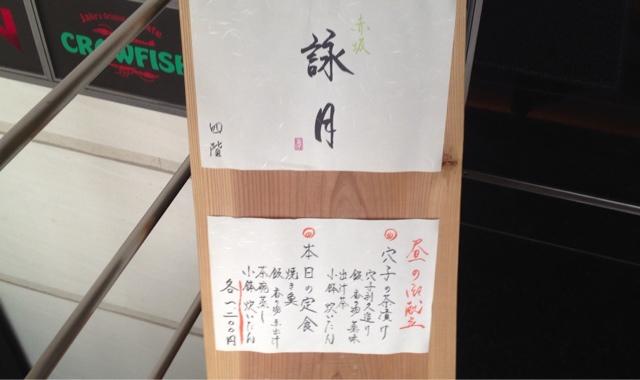 赤坂
詠月
四階
昼の御献立
穴子の茶漬け
穴子利久造り
飯 香の物 薬味
出汁茶
小鉢 炊いたん
本日の定食
焼き魚
飯 香の物 赤出汁
茶碗蒸し
小鉢 炊いたん
各一二〇〇円
CRAWFISH